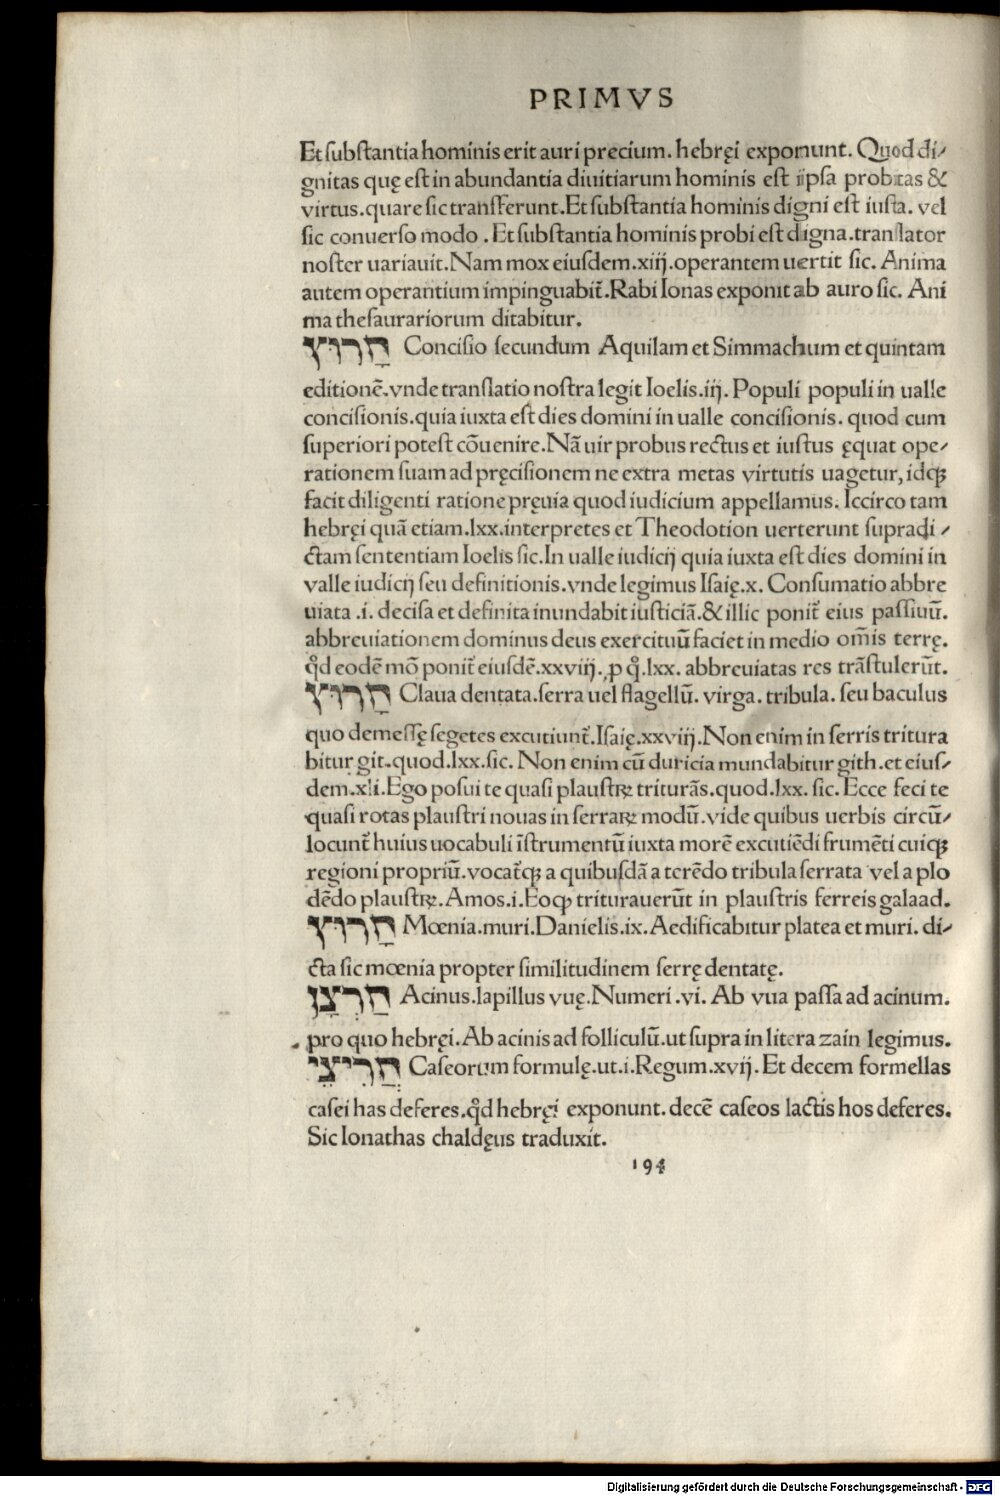 PRIMVS
Et ſubſtantia hominis erit auri precium. hebręi exponunt. Quod di⸗
gnitas quę eſt in abundantia diuitiarum hominis eſt ipſa probitas &
virtus.quare ſic tranſferunt.Et ſubſtantia hominis digni eſt iuſta. vel
ſic conuerſo modo . Et ſubſtantia hominis probi eſt digna.tranſlator
noſter uariauit.Nam mox eiuſdem.xiij.operantem uertit ſic. Anima
autem operantium impinguabit̄.Rabi Ionas exponit ab auro ſic. Ani
ma theſaurariorum ditabitur.
חָרוּץ Conciſio ſecundum Aquilam et Simmachum et quintam
editionē.vnde tranſlatio noſtra legit Ioelis.iij. Populi populi in ualle
conciſionis.quia iuxta eſt dies domini in ualle conciſionis. quod cum
ſuperiori poteſt cōuenire.Nā uir probus rectus et iuſtus ęquat ope⸗
rationem ſuam ad pręciſionem ne extra metas virtutis uagetur, idqꝫ
facit diligenti ratione pręuia quod iudicium appellamus. Iccirco tam
hebręi quā etiam.lxx.interpretes et Theodotion uerterunt ſupradi ⸗
ctam ſententiam Ioelis ſic.In ualle iudicij quia iuxta eſt dies domini in
valle iudicij ſeu definitionis.vnde legimus Iſaię.x. Conſumatio abbre
uiata .i. deciſa et definita inundabit iuſticiā.& illic ponit̄ eius paſſiuū.
abbreuiationem dominus deus exercituū faciet in medio om̄is terrę.
qd̓ eodē mō ponit̄ eiuſdē.xxviij. ꝓ q̊.lxx. abbreuiatas res trāſtulerūt.
חָרוּץ Claua dentata.ſerra uel flagellū. virga. tribula. ſeu baculus
quo demeſſę ſegetes excutiunt̄.Iſaię.xxviij.Non enim in ſerris tritura
bitur git.quod.lxx.ſic. Non enim cū duricia mundabitur gith.et eiuſ⸗
dem.xli.Ego poſui te quaſi plauſtꝝ triturās.quod.lxx. ſic. Ecce feci te
quaſi rotas plauſtri nouas in ſerraꝝ modū.vide quibus uerbis circū⸗
locunt̄ huius uocabuli īſtrumentū iuxta morē excutiēdi frumēti cuiqꝫ
regioni propriū.vocat̄qꝫ a quibuſdā a terēdo tribula ſerrata vel a plo
dēdo plauſtꝝ. Amos.i.Eoqꝫ triturauerūt in plauſtris ferreis galaad.
חָרוּץ Mœnia.muri.Danielis.ix.Aedificabitur platea et muri. di⸗
cta ſic mœnia propter ſimilitudinem ſerrę dentatę.
חַרְצָן Acinus.lapillus vuę.Numeri .vi. Ab vua paſſa ad acinum.
pro quo hebręi.Ab acinis ad folliculū.ut ſupra in litera zain legimus.
חֲרִיצֵי Caſeorum formulę.ut.i.Regum.xvij. Et decem formellas
caſei has deferes.qd̓ hebręi exponunt. decē caſeos lactis hos deferes.
Sic Ionathas chaldęus traduxit.
194
Digitalisierung gefördert durch die Deutsche Forschungsgemeinschaft - DFG